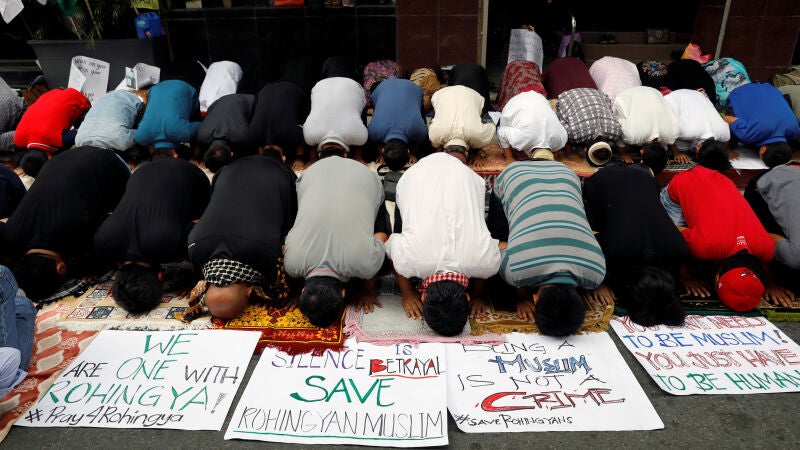 WE
ARE ONE WITH
ROHINGYA!
#Pray4Rohingya
SILENCE IS
BETRAYAL
SAVE
ROHINGYAN MUSLIM
BEING A
MUSLIM
IS NOT A
CRIME
#SAVEROHINGYANS
YOU DON'T NEED TO
BE MUSLIM!
YOU JUST HAVE
TO BE HUMAN